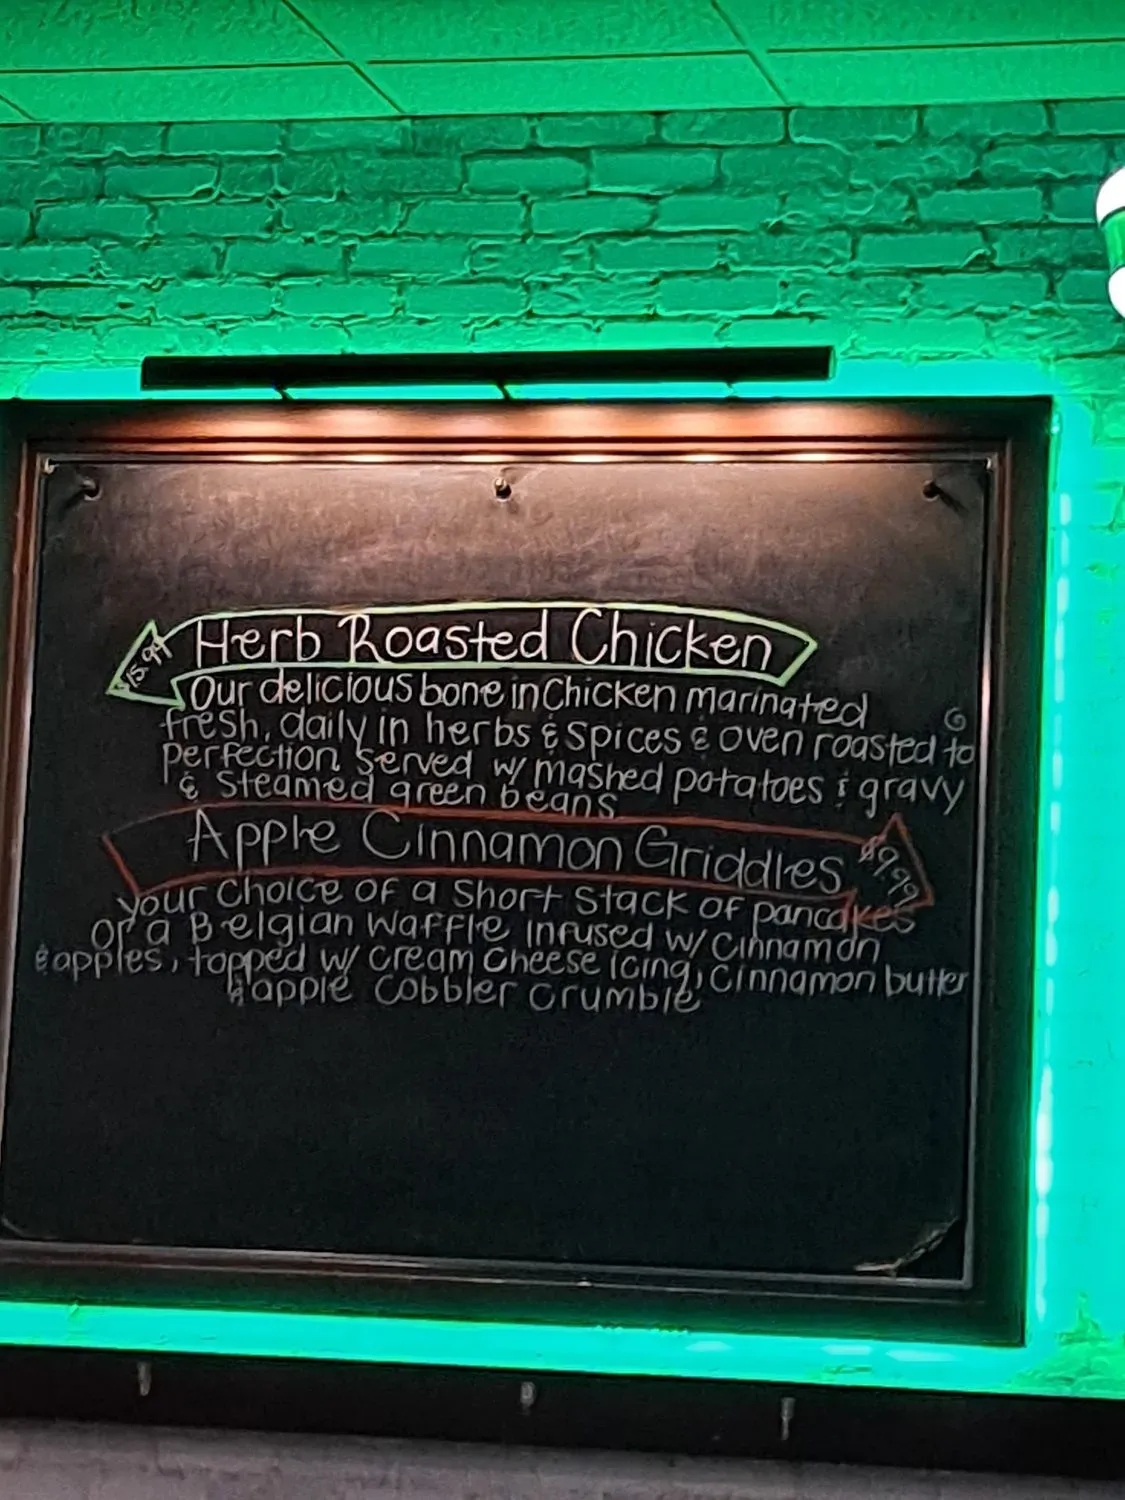 Herb Roasted Chicken
$15.99
Our delicious bone in Chicken marinated
fresh, daily in herbs & spices & oven roasted to
perfection served w/ mashed potatoes & gravy
& steamed green beans
Apple Cinnamon Griddles $9.99
your choice of a short stack of pancakes
or a Belgian waffle infused w/ cinnamon
& apples, topped w/ cream cheese icing, cinnamon butter
& apple cobbler crumble